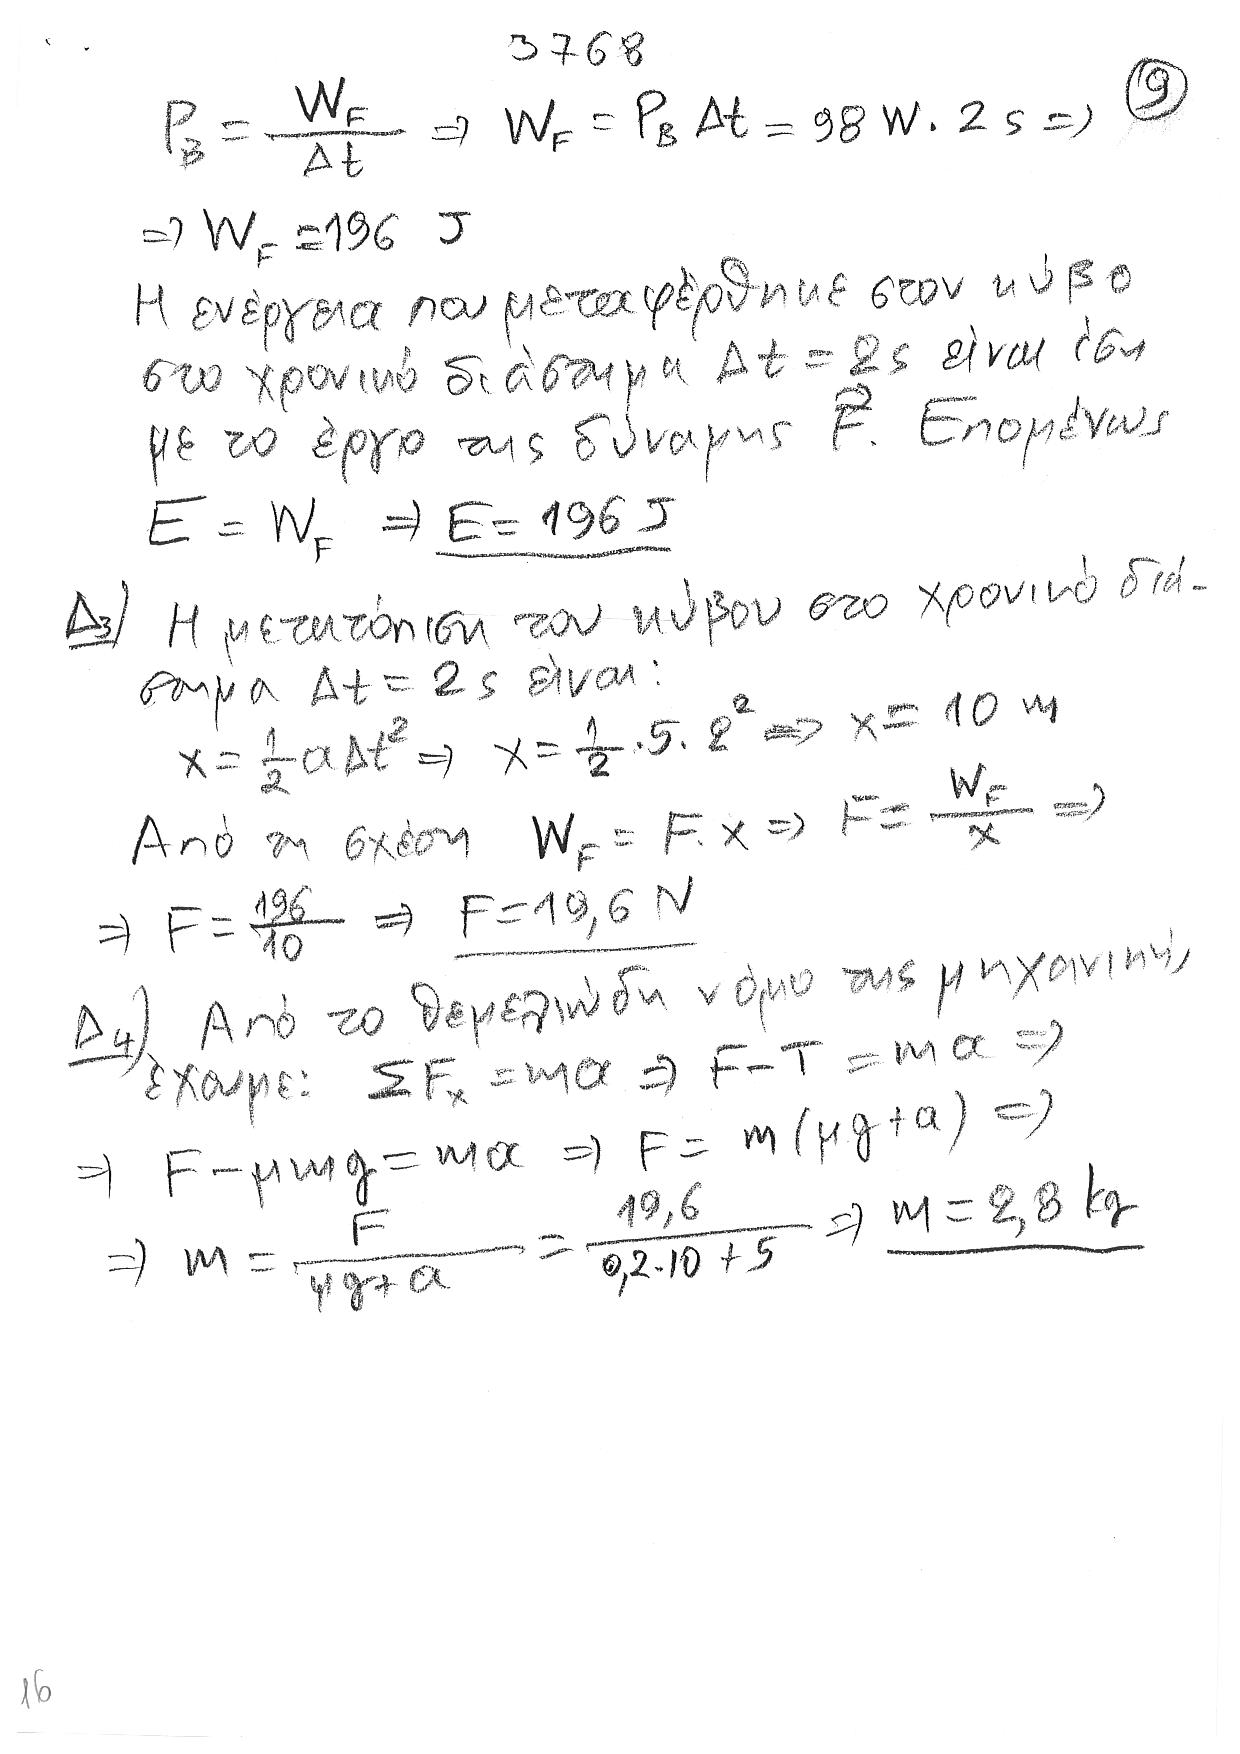 3768
9
P_B = W_F / Δt ⇒ W_F = P_B Δt = 98 W . 2 s ⇒
⇒ W_F = 196 J
Η ενέργεια που μεταφέρθηκε στον κύβο
στο χρονικό διάστημα Δt = 2s είναι ίση
με το έργο της δύναμης F⃗. Επομένως
E = W_F ⇒ E = 196 J
Δ3) Η μετατόπιση του κύβου στο χρονικό διά-
στημα Δt = 2 s είναι:
x = 1/2 a Δt² ⇒ x = 1/2 . 5 . 2² ⇒ x = 10 m
Από τη σχέση W_F = F . x ⇒ F = W_F / x ⇒
⇒ F = 196 / 10 ⇒ F = 19,6 N
Δ4) Από το θεμελιώδη νόμο της μηχανικής
έχουμε: ΣF_x = ma ⇒ F - T = ma ⇒
⇒ F - μmg = ma ⇒ F = m(μg + a) ⇒
⇒ m = F / μg + a = 19,6 / 0,2·10 + 5 ⇒ m = 2,8 kg
16